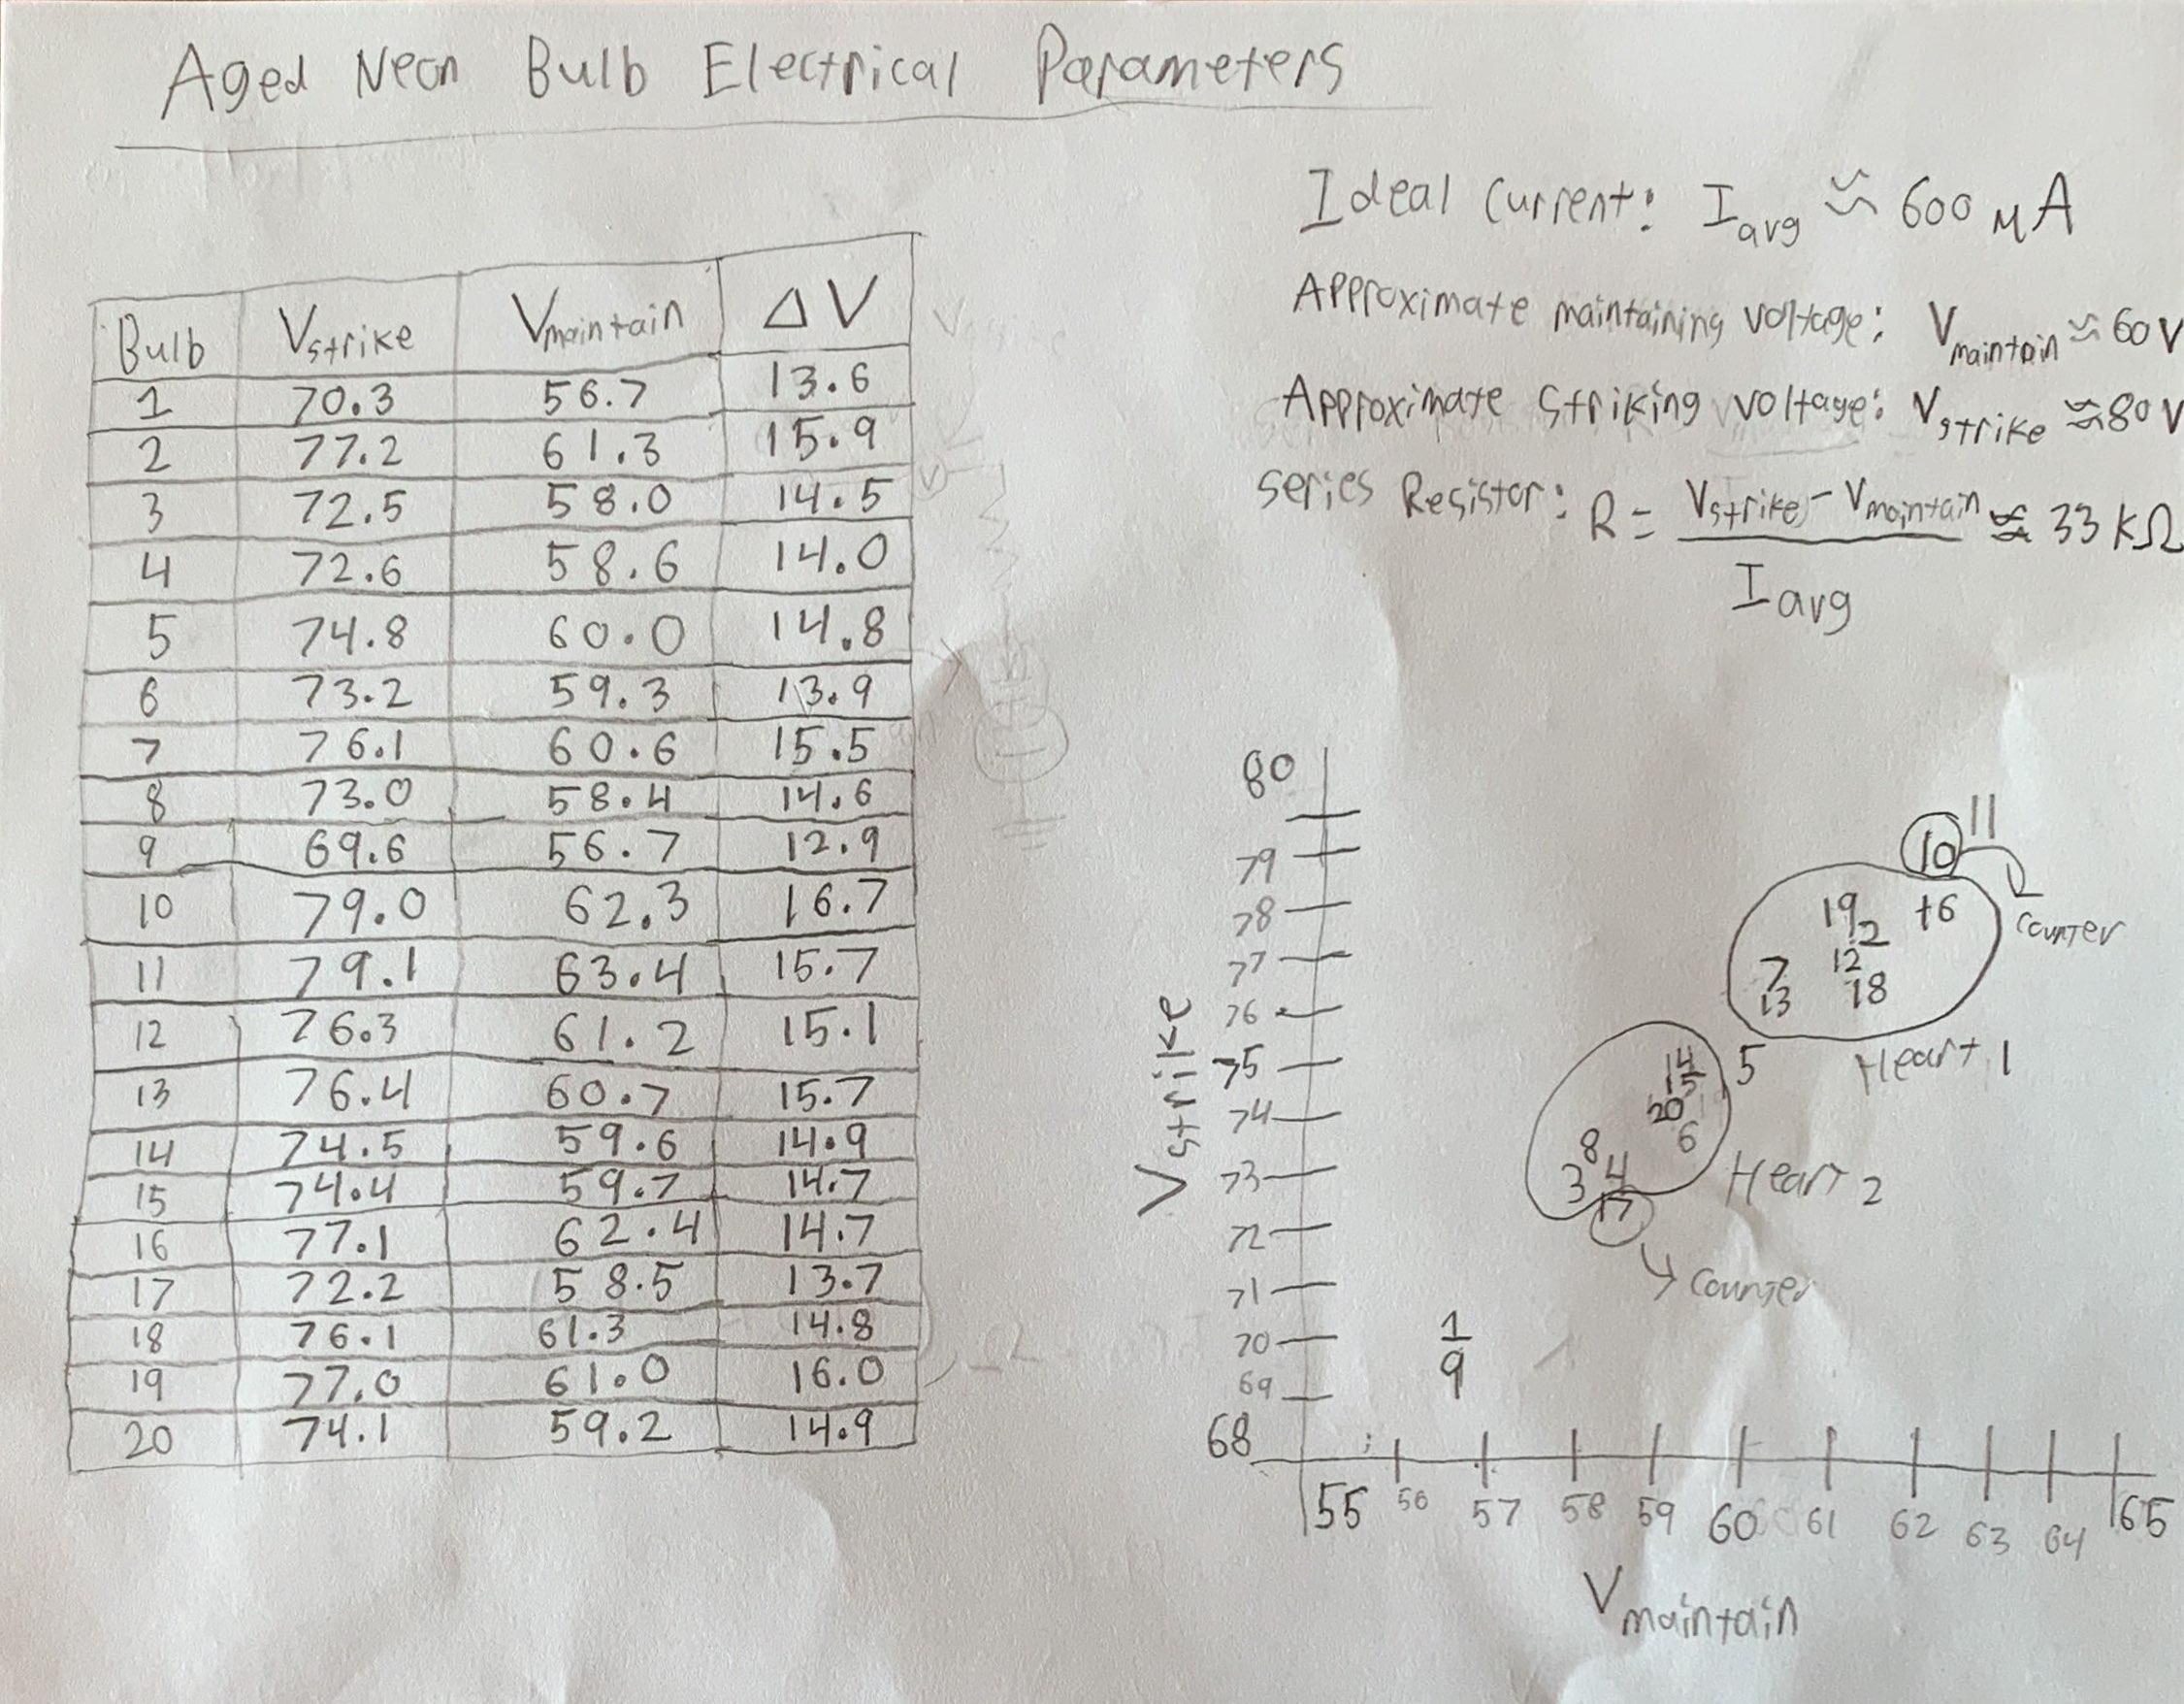 Aged Neon Bulb Electrical Parameters
Ideal Current: Iavg ≈ 600 μA
Approximate maintaining voltage: Vmaintain ≈ 60V
Approximate striking voltage: Vstrike ≈ 80V
series Resistor: R = (Vstrike - Vmaintain) / Iavg ≈ 33 kΩ
Bulb Vstrike Vmaintain ΔV
1 70.3 56.7 13.6
2 77.2 61.3 15.9
3 72.5 58.0 14.5
4 72.6 58.6 14.0
5 74.8 60.0 14.8
6 73.2 59.3 13.9
7 76.1 60.6 15.5
8 73.0 58.4 14.6
9 69.6 56.7 12.9
10 79.0 62.3 16.7
11 79.1 63.4 15.7
12 76.3 61.2 15.1
13 76.4 60.7 15.7
14 74.5 59.6 14.9
15 74.4 59.7 14.7
16 77.1 62.4 14.7
17 72.2 58.5 13.7
18 76.1 61.3 14.8
19 77.0 61.0 16.0
20 74.1 59.2 14.9
80
79
78
77
76
75
74
73
72
71
70
69
68
Vstrike
10 11
Counter
19 2 16
7 12
13 18
Heart 1
5
14
15
20
6
8
3 4
17
Heart 2
Counter
1
9
55 56 57 58 59 60 61 62 63 64 65
Vmaintain